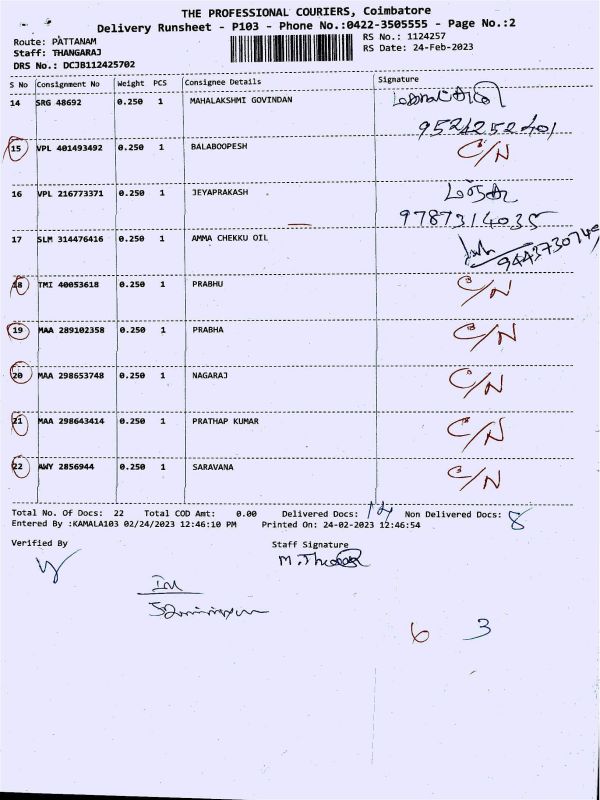 THE PROFESSIONAL COURIERS, Coimbatore
Delivery Runsheet - P103 - Phone No.:0422-3505555 - Page No.:2
Route: PATTANAM
RS No.: 1124257
Staff: THANGARAJ
RS Date: 24-Feb-2023
DRS No.: DCJB112425702
S No Consignment No Weight PCS Consignee Details Signature
14 SRG 48692 0.250 1 MAHALAKSHMI GOVINDAN
9524252401
15 VPL 401493492 0.250 1 BALABOOPESH C/N
16 VPL 216773371 0.250 1 JEYAPRAKASH
9787314035
17 SLM 314476416 0.250 1 AMMA CHEKKU OIL
18 TMI 40053618 0.250 1 PRABHU C/N
19 MAA 289102358 0.250 1 PRABHA C/N
20 MAA 298653748 0.250 1 NAGARAJ C/N
21 MAA 298643414 0.250 1 PRATHAP KUMAR C/N
22 AWY 2856944 0.250 1 SARAVANA C/N
Total No. Of Docs: 22 Total COD Amt: 0.00 Delivered Docs: 14 Non Delivered Docs: 8
Entered By :KAMALA103 02/24/2023 12:46:10 PM Printed On: 24-02-2023 12:46:54
Verified By Staff Signature
6 3